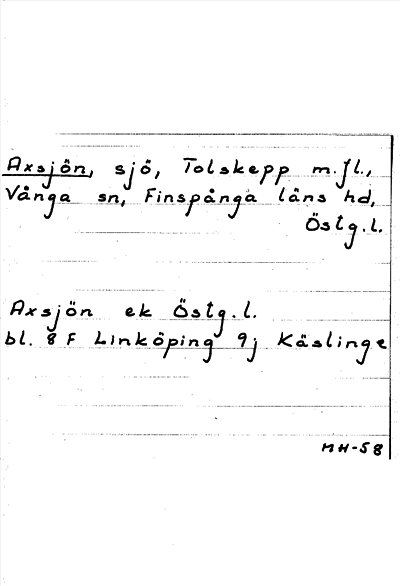 Axsjön, sjö, Tolskepp m.fl.,
Vånga sn, Finspånga läns hd,
Östg.l.
Axsjön ek Östg.l.
bl. 8 F Linköping 9j Käslinge
MH-58